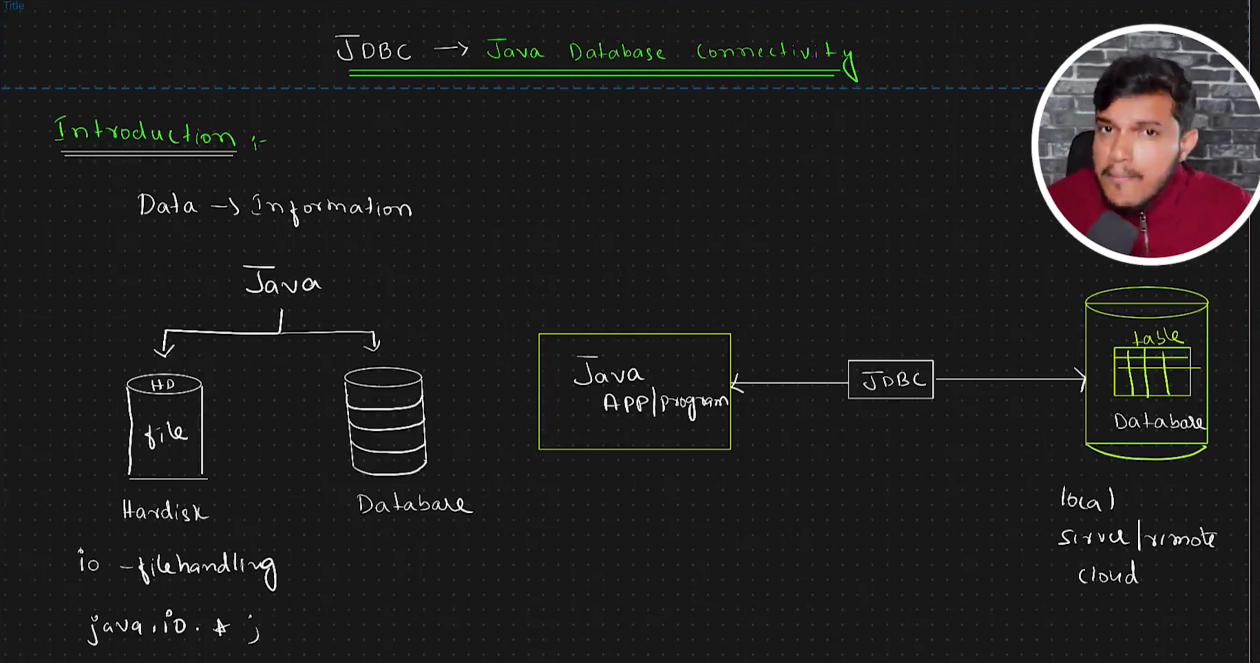 Title
JDBC → Java Database Connectivity
Introduction :-
Data → Information
Java
HD
file
Hardisk
Database
io - filehandling
java.io.* ;
Java
APP/program
JDBC
table
Database
local
server/remote
cloud